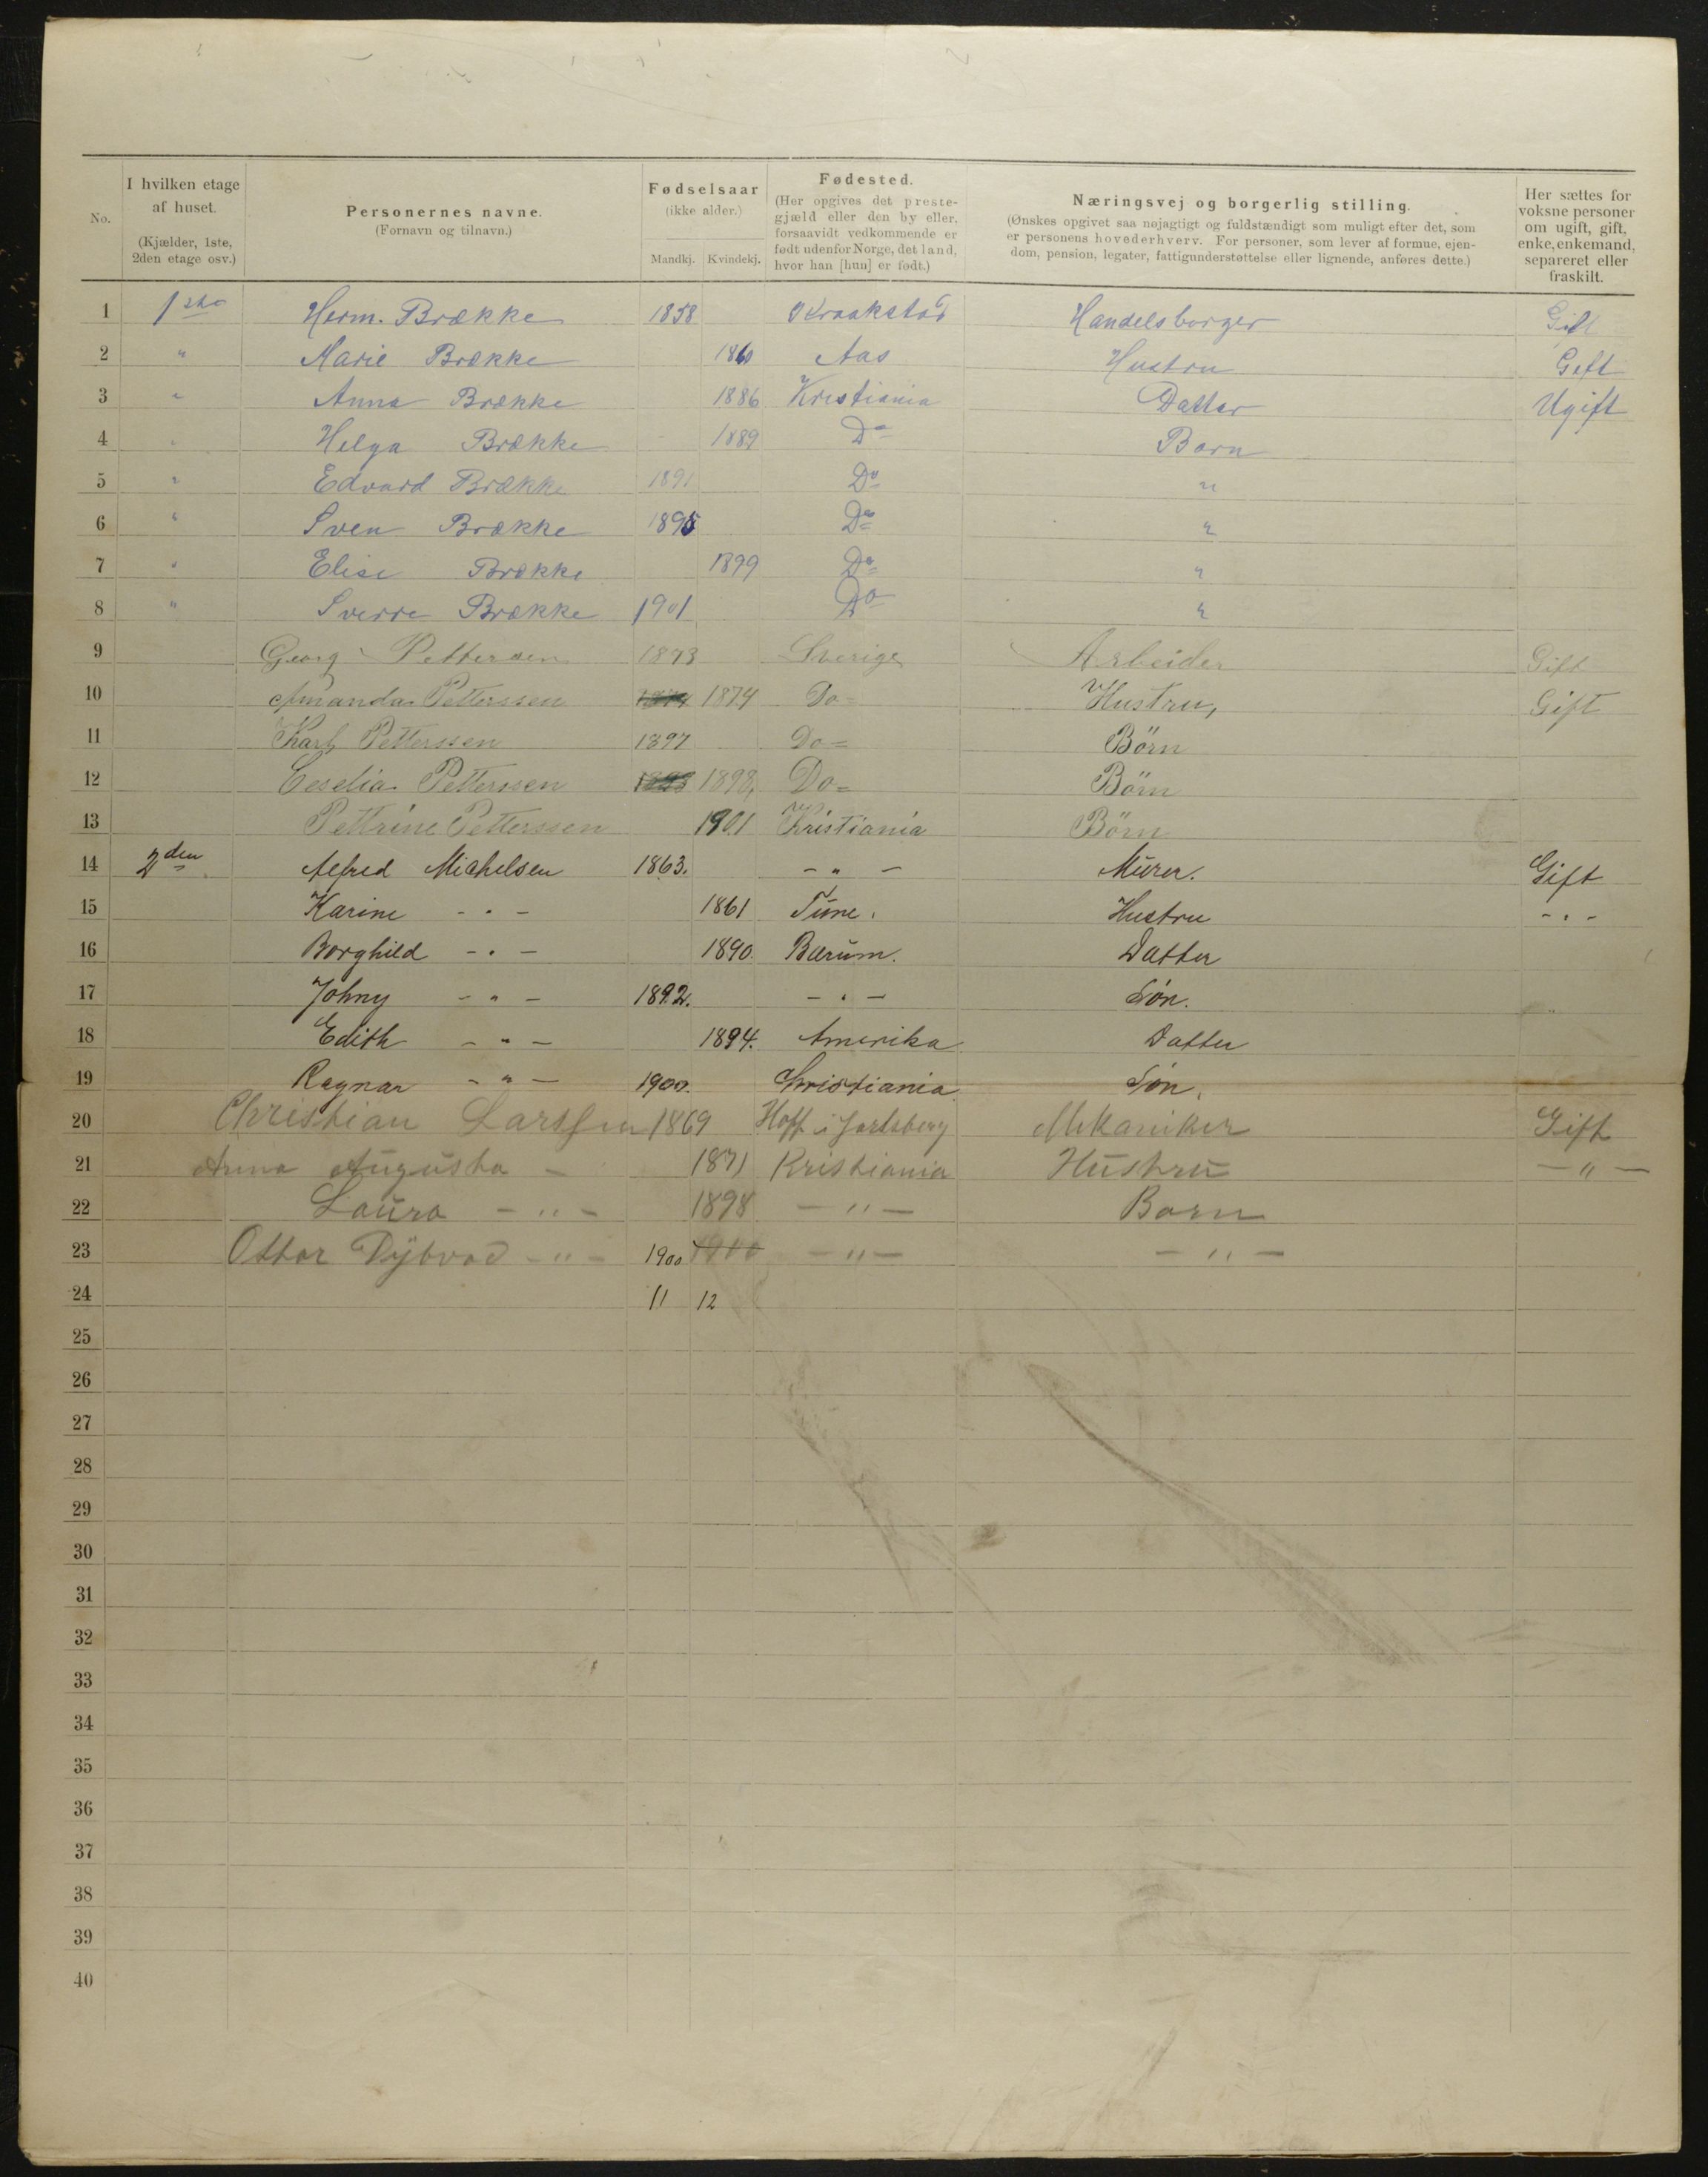 No.
I hvilken etage af huset.
(Kjælder, 1ste, 2den etage osv.)
Personernes navne.
(Fornavn og tilnavn.)
Fødselsaar
(ikke alder.)
Mandkj. Kvindekj.
Fødested.
(Her opgives det prestegjæld eller den by eller, forsaavidt vedkommende er født udenfor Norge, det land, hvor han [hun] er født.)
Næringsvej og borgerlig stilling.
(Ønskes opgivet saa nøjagtigt og fuldstændigt som muligt efter det, som er personens hovederhverv. For personer, som lever af formue, ejendom, pension, legater, fattigunderstøttelse eller lignende, anføres dette.)
Her sættes for voksne personer om ugift, gift, enke, enkemand, separeret eller fraskilt.
1 1ste Herm. Brække 1858 Kraakstad Handelsborger Gift
2 " Marie Brække 1860 Aas Hustru Gift
3 " Anna Brække 1886 Kristiania Datter Ugift
4 " Helga Brække 1889 Do Barn
5 " Edvard Brække 1891 Do "
6 " Sven Brække 1895 Do "
7 " Elise Brække 1899 Do "
8 " Sverre Brække 1901 Do "
9 Georg Pettersen 1873 Sverige Arbeider Gift
10 Amanda Petterssen 1874 Do= Hustru, Gift
11 Karl Petterssen 1897 Do= Börn
12 Ceselia Petterssen 1898, Do= Börn
13 Pettrine Petterssen 1901 Kristiania Börn
14 2den Alfred Michelsen 1863. - " - Murer. Gift
15 Karine - " - 1861 Tune. Hustru - " -
16 Borghild - " - 1890 Bærum. Datter
17 Johny - " - 1892. - " - Søn.
18 Edith - " - 1894. Amerika Datter
19 Ragnar - " - 1900. Christiania Søn.
20 Christian Larssen 1869 Hoff i Jarlsberg Mekaniker Gift
21 Anna Augusta - 1871 Kristiania Hustru - " -
22 Laura - " - 1898 - " - Barn
23 Ottar Dybvad - " - 1900 1900 - " - - " -
24 11 12
25
26
27
28
29
30
31
32
33
34
35
36
37
38
39
40